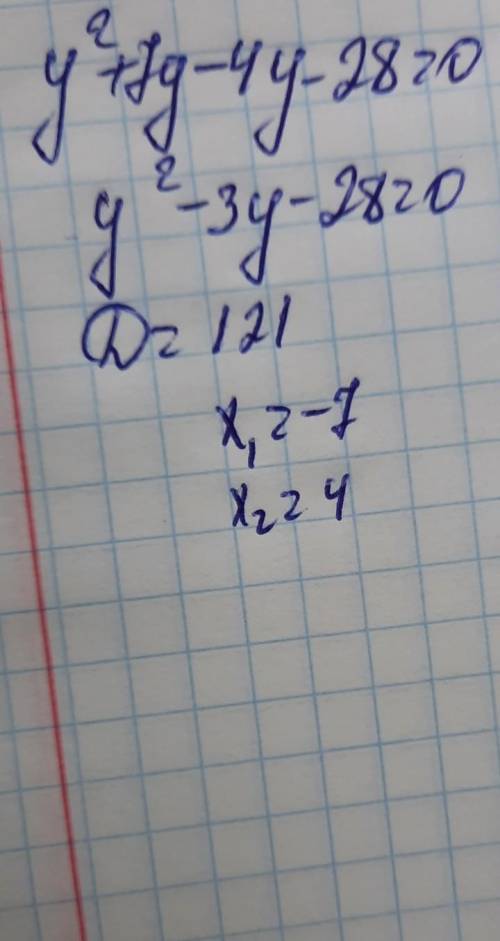 y²+7y-4y-28=0
y²-3y-28=0
D=121
x₁=-7
x₂=4